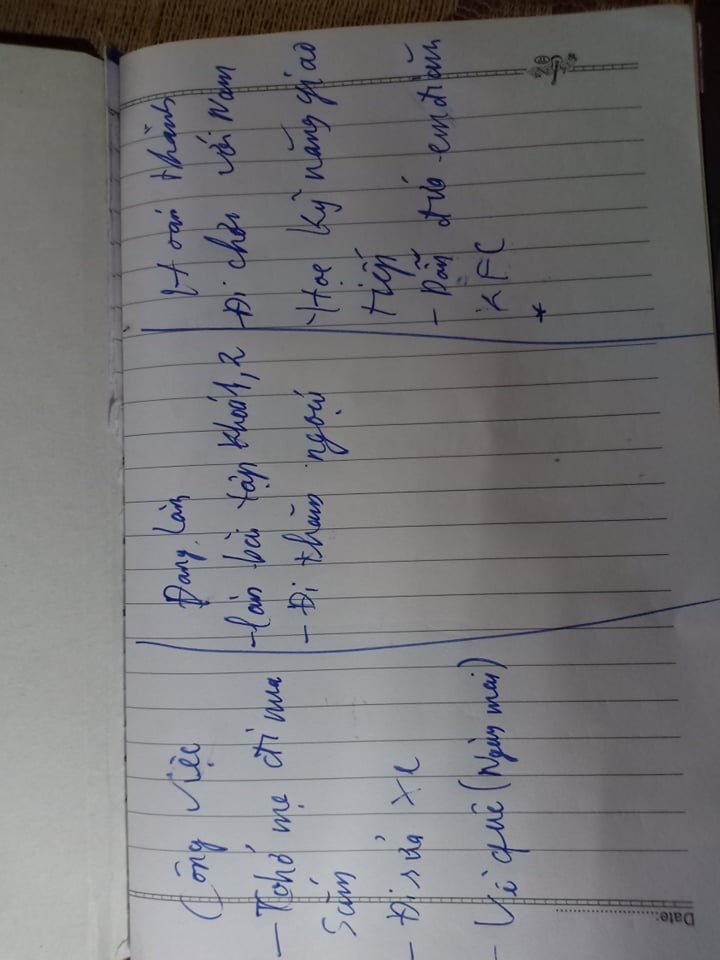 Công việc
- Nhớ mẹ đi mua
sắm
- Đi sửa xe
- Về quê (Ngày mai)
Đang làm
- làm bài tập khoá 1, 2
- Đi thăm ngoại
Hoàn thành
- Đi chơi với Nam
Học kỹ năng giao
tiếp
- Dẫn đứa em đi ăn
KFC
*
Date: